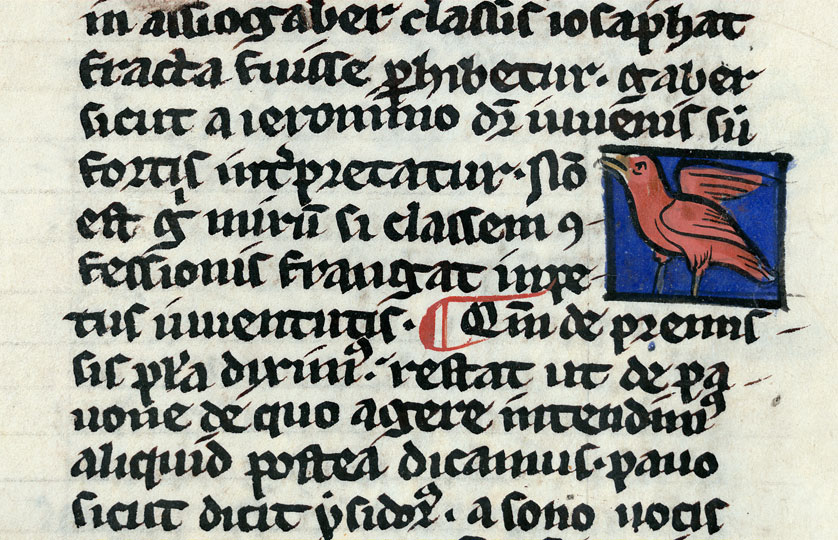 in assiogaber classis iosaphat
fracta fuisse ꝑhibetur. gaber
sicut a ieronimo dr̄ iuuenis sú
fortis int̓pretatur. Nō
est gͥ mirū si classem ꝯ
fessionis frangat inpe
tus iuuentutis. Qm̄ de premis
sis pl̓a diximꝰ. restat ut de pa
uone de quo agere intendimꝰ
aliquid postea dicamus. pauo
sicut dicit ysidorꝰ. a sono uocis